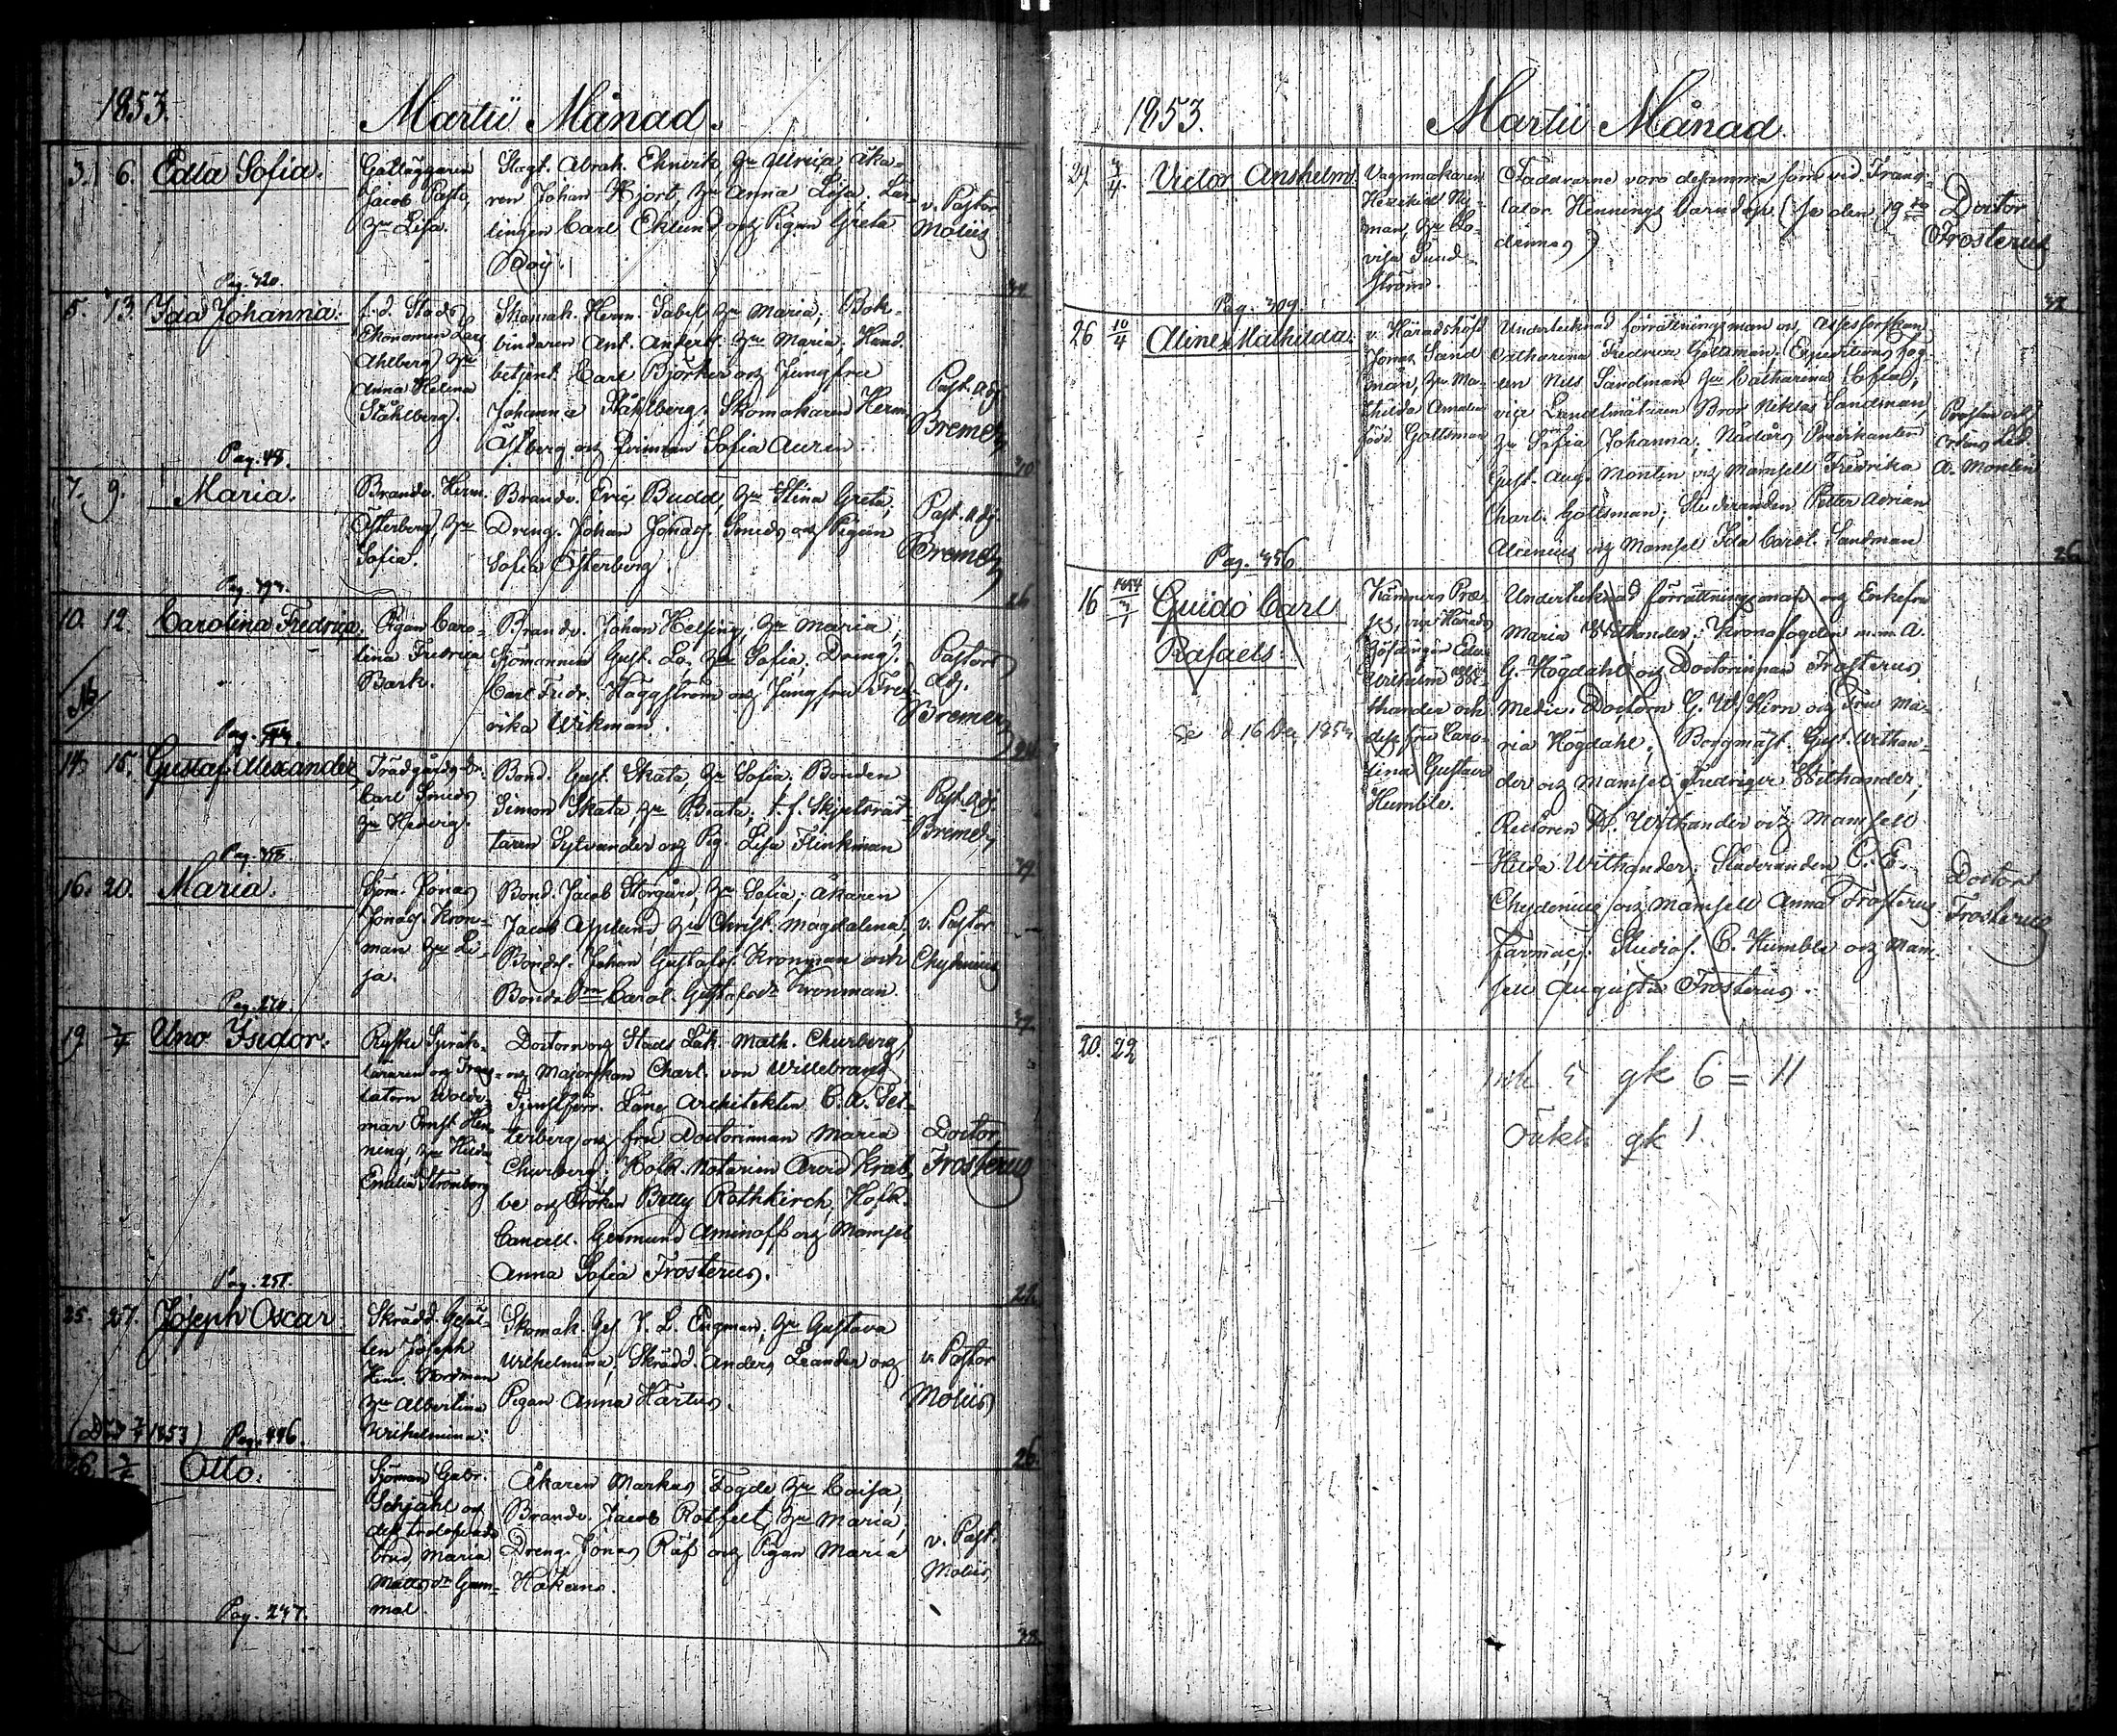 1853.
Martii Månad.
3. 6. Edla Sofia.
Gatläggaren
Jacob Pasto,
hu Lisa.
Slagt. Abrah. Ehnvik, hu Ulrica, åka-
ren Johan Hjort, hu Anna Lisa, Lär-
lingen Carl Eklund och Pigan Greta
v. Pastor
Moliis
Pag. 420.
5. 13. Ida Johanna.
f.d. Stads
Ekonomen Lars
Ahlberg, hu
Anna Helena
Ståhlberg.
Skomak. Herm. Sabel, hu Maria; Bok-
bindaren Ant. Anders. hu Maria; Hand.
betjent. Carl Björker och Jungfru
Johanna Ståhlberg; Skomakaren Herm.
Åstberg och Qvinnan Sofia Auren.
Past. Adj.
Bremer
Pag. 48.
40
7. 9. Maria.
Brandv. Herm.
Österberg, hu
Sofia.
Brandv. Eric Budd, hu Stina Greta,
Dreng. Johan Jonas. Smeds och Pigan
Sofia Österberg.
Past. Adj.
Bremer
26
10. 12. Carolina Fredrica.
Pigan Caro-
lina Fredrica
Bark.
Brandv. Johan Helsing, hu Maria,
Sjömannen Gust. Lo, hu Sofia; Dreng.
Carl Fredr. Häggström och Jungfru Fred-
rika Wikman.
Pastors
Adj.
Bremer
14. 15. Gustaf Alexander
Trädgårds Dr.
Carl Smeds
hu Hedvig.
Bond. Gust. Skata, hu Sofia; Bonden
Simon Skata, hu Beata; t. f. Skjutsrät-
taren Sylvander och Pig. Lisa Flinkman
Past. Adj.
Bremer
16. 20. Maria.
Sjöm. Jonas
Jonas. Kron-
man hu Li-
sa.
Bond. Jacob Storgård, hu Sofia; åkaren
Jacob Asplund, hu Christ. Magdalena,
Bondes. Johan Gustafss. Kronman och
Bonded:n Carol. Gustafsdr Kronman.
v. Pastor
Chydenius
Pag. 270.
19. 7/4 Uno Isidor.
Ryska Språk-
läraren och Trans-
latorn Wolde-
mar Ernst Hen-
ning, hu Hilda
Emelia Strömborg
Doctorn och Stads Läk. Math. Churberg,
och Majorskan Charl. von Willebrand
Tjenstförr. Läns Architekten C. A. Set-
terberg och fru Doctorinnan Maria
Churberg; Hofr. Notarien Arvid Krab-
be och Fröken Betty Rothkirch, Hofr.
Cancell. Germund Aminoff och Mamsel
Anna Sofia Frosterus.
Doctor
Frosterus
Pag. 251.
25. 27. Joseph Oscar.
Skrädd. Gesäl-
len Joseph
Henr. Nordman
hu Albertina
Wilhelmina.
Skomak. Ges. J. L. Engman, hu Gustava
Wilhelmina; Skrädd. Anders Leander och
Pigan Anna Hartus.
v. Pastor
Moliis
(Död 7/4 1853) Pag. 446.
26.
26. Otto.
Sjöman Gabr.
Schjähl och
dess trolofvade
brud, Maria
Mattsdr Gam-
mal.
Åkaren Markus Fogde hu Caisa,
Brandv. Jacob Rosfelt, hu Maria,
Dreng. Jonas Räf och Pigan Maria
Håkans.
v. Past.
Moliis
Pag. 247.
38.
1853.
Martii Månad
27. 3/4. Victor Anshelm.
Vagnmakaren
Henrik Ny-
man, hu Lo-
visa Sund-
ström
Faddrarne voro desamma som vid Trans-
lator Hennings barndop (se den 19
dennes)
Doctor
Frosterus
Pag. 309.
26 10/4 Aline Mathilda.
v. Häradshöfd.
Jonas Sand-
man, hu Ma-
thilda Amalia
född Gottsman
Undertecknad förrättningsman och Assessorskan
Catharina Fredrica Gottsman; Expeditions fog-
den Nils Sandman hu Catharina Sofia;
vice Landtmätaren Bror Niklas Sandman,
hu Sofia Johanna; Nådårs Predikanten
Gust. Aug. Montin och Mamsell Fredrika
Charl. Gottsman; Studeranden Petter Adrian
Alcenius och Mamsel Ida Carol. Sandman
Prosten och
Ordens Led.
A. Montin
Pag. 356.
26
16 1854 3/1 Guido Carl
Rafael.
se d. 16 De 1853
Kämners Præ-
ses, vice Härads
höfdingen Edv.
Wilhelm Wit-
thander och
dess fru Caro-
lina Gustava
Humble.
Undertecknad förrättningsman och Enkefru
Maria Witthander; Kronofogden m.m. A.
G. Högdahl och Doctorinnan Frosterus
Medic. Doctorn G. W. Kirn och Fru Ma-
ria Högdahl; Borgmäst. Gust. Withan-
der och Mamsel Fredrique Withander;
Rectoren W. Withander och Mamsell
Hilda Withander; Studeranden C. E.
Chydenius och Mamsell Anna Frosterus
Farmac. Studios. C. Humble och Mam-
sell Augusta Frosterus.
Doctor
Frosterus
20. 22
mk 5 gk 6 = 11
oäkta gk 1